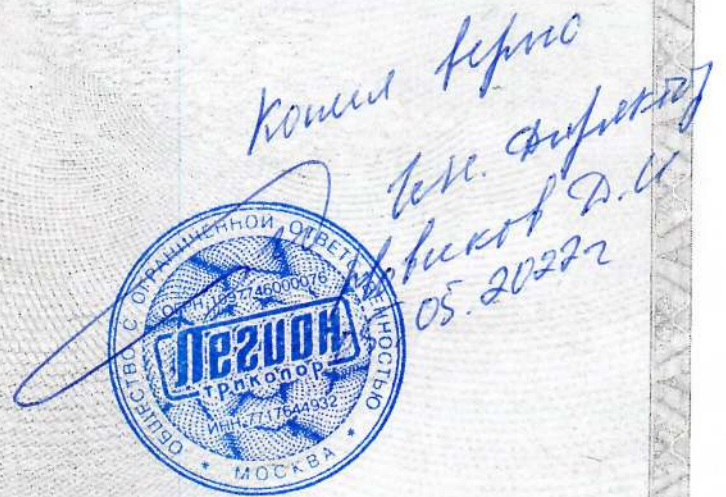 Копия верно
Ген. директор
Новиков Д.И
05.2022г
ОБЩЕСТВО С ОГРАНИЧЕННОЙ ОТВЕТСТВЕННОСТЬЮ
ОГРН 1097746000076
Легион
ИНН 7717644932
* МОСКВА *